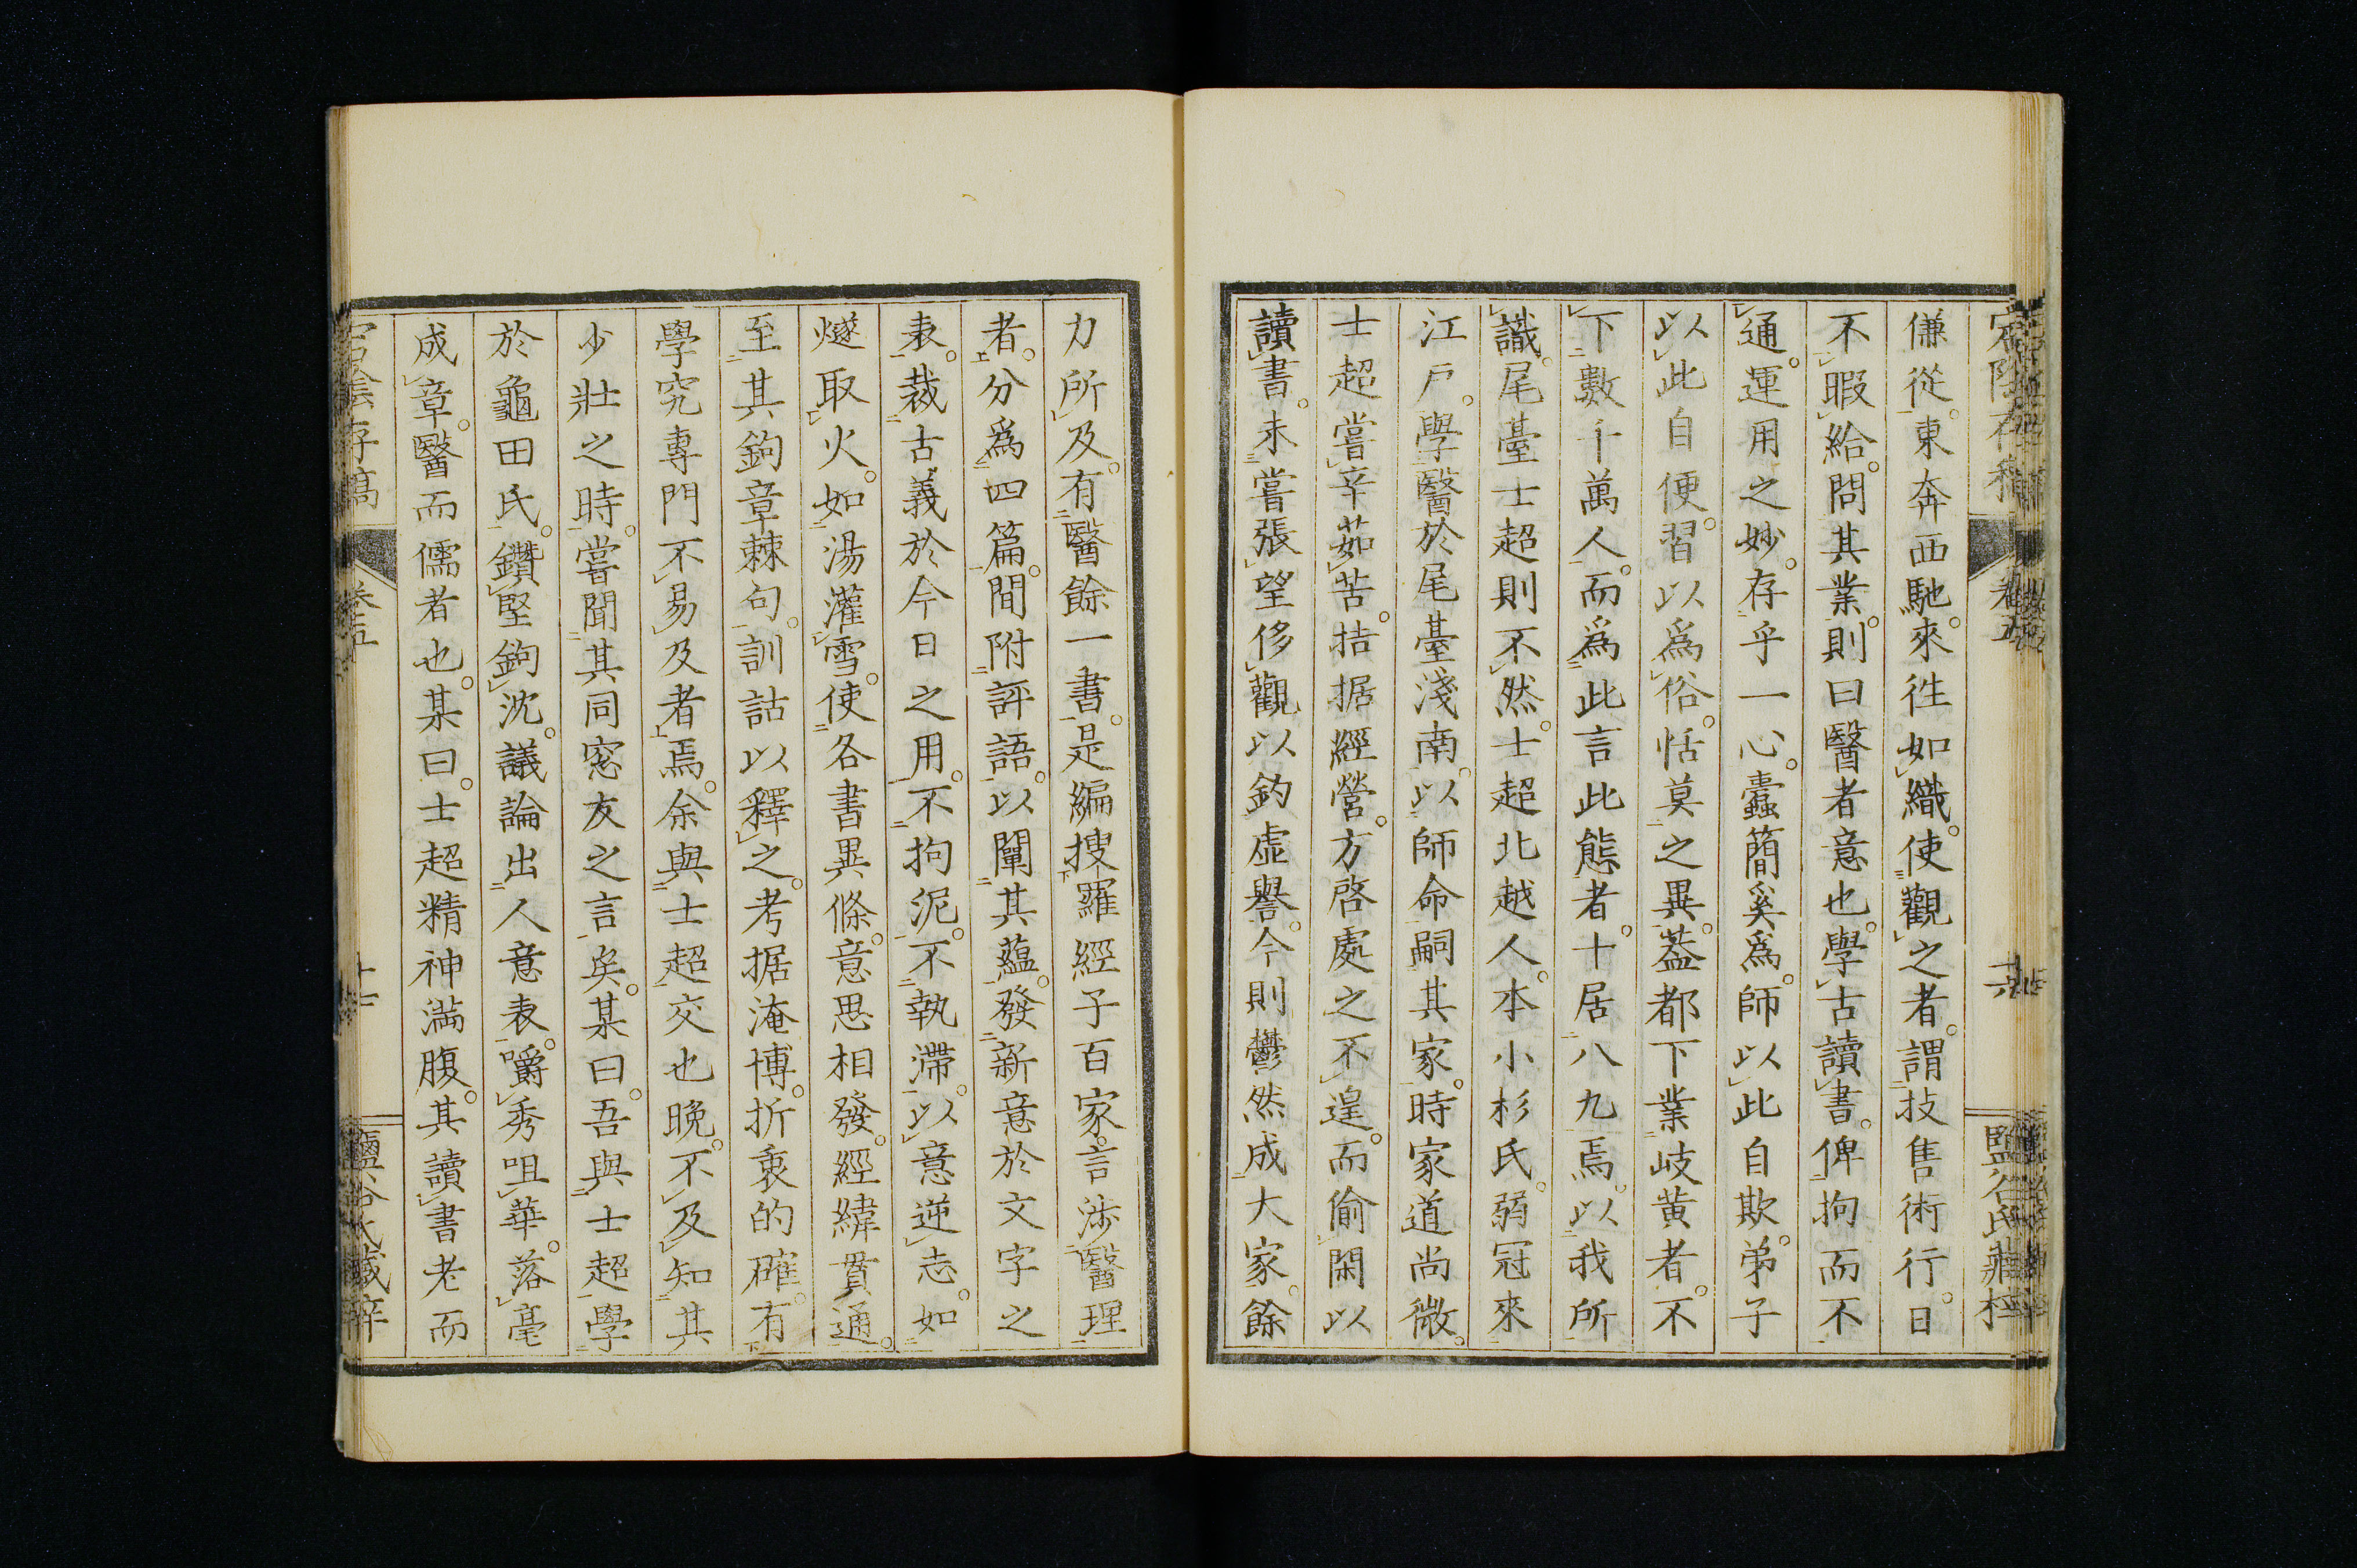 傔從。東奔西馳。來徃如織。使觀之者。謂技售術行。日
不暇給。問其業。則曰醫者意也。學古讀書。俾拘而不
通。運用之妙。存乎一心。蠹簡奚爲。師以此自欺。弟子
以此自便。習以爲俗。恬莫之異。葢都下業岐黄者。不
下數千萬人。而爲此言此態者。十居八九焉。以我所
識。尾臺士超則不然。士超北越人。本小杉氏。弱冠來
江戸。學醫於尾臺淺南。以師命嗣其家。時家道尚微。
士超嘗辛茹苦。拮据經營。方啓處之不遑。而偷閑以
讀書。未嘗張望侈觀以釣虚譽。今則鬱然成大家。餘
力所及。有醫餘一書。是編搜羅經子百家。言渉醫理
者。分爲四篇。間附評語。以闡其蘊。發新意於文字之
表。裁古義於今日之用。不拘泥。不執滯。以意逆志。如
燧取火。如湯灌雪。使各書異條。意思相發。經緯貫通。
至其鉤章棘句。訓詁以釋之。考据淹博。折衷的確。有
學究專門不易及者焉。余與士超交也晩。不及知其
少壯之時。嘗聞其同窓友之言矣。某曰。吾與士超學
於龜田氏。鑽堅鉤沈。議論出人意表。嚼秀咀華。落毫
成章。醫而儒者也。某曰。士超精神滿腹。其讀書老而